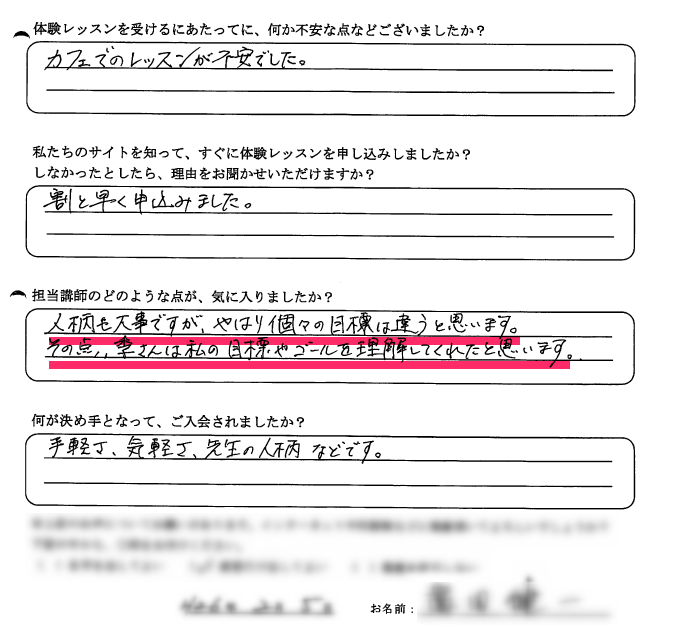 体験レッスンを受けるにあたってに、何か不安な点などございましたか？
カフェでのレッスンが不安でした。
私たちのサイトを知って、すぐに体験レッスンを申し込みしましたか？
しなかったとしたら、理由をお聞かせいただけますか？
割と早く申込みました。
担当講師のどのような点が、気に入りましたか？
人柄も大事ですが、やはり個々の目標は違うと思います。
その点、李さんは私の目標やゴールを理解してくれたと思います。
何が決め手となって、ご入会されましたか？
手軽さ、気軽さ、先生の人柄などです。
お名前：